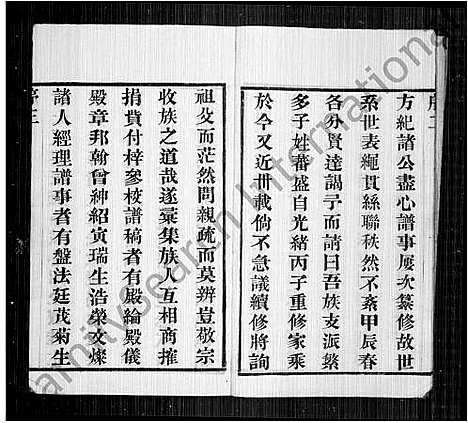 序二
方紀諸公盡心譜事屢次纂修故世
系世表繩貫絲聯秩然不紊甲辰春
各分賢達謁予而請曰吾族支派繁
多子姓蕃盛自光緒丙子重修家乘
於今又近卅載倘不急議續修將詢
祖父而茫然問親疏而莫辨豈敬宗
收族之道哉遂彙集族人互相商搉
捐貲付梓參校譜稿者有殿綸殿儀
殿章邦翰曾紳紹寅瑞生浩榮文燦
諸人經理譜事者有盤法廷茂菊生
序三
FamilySearch International